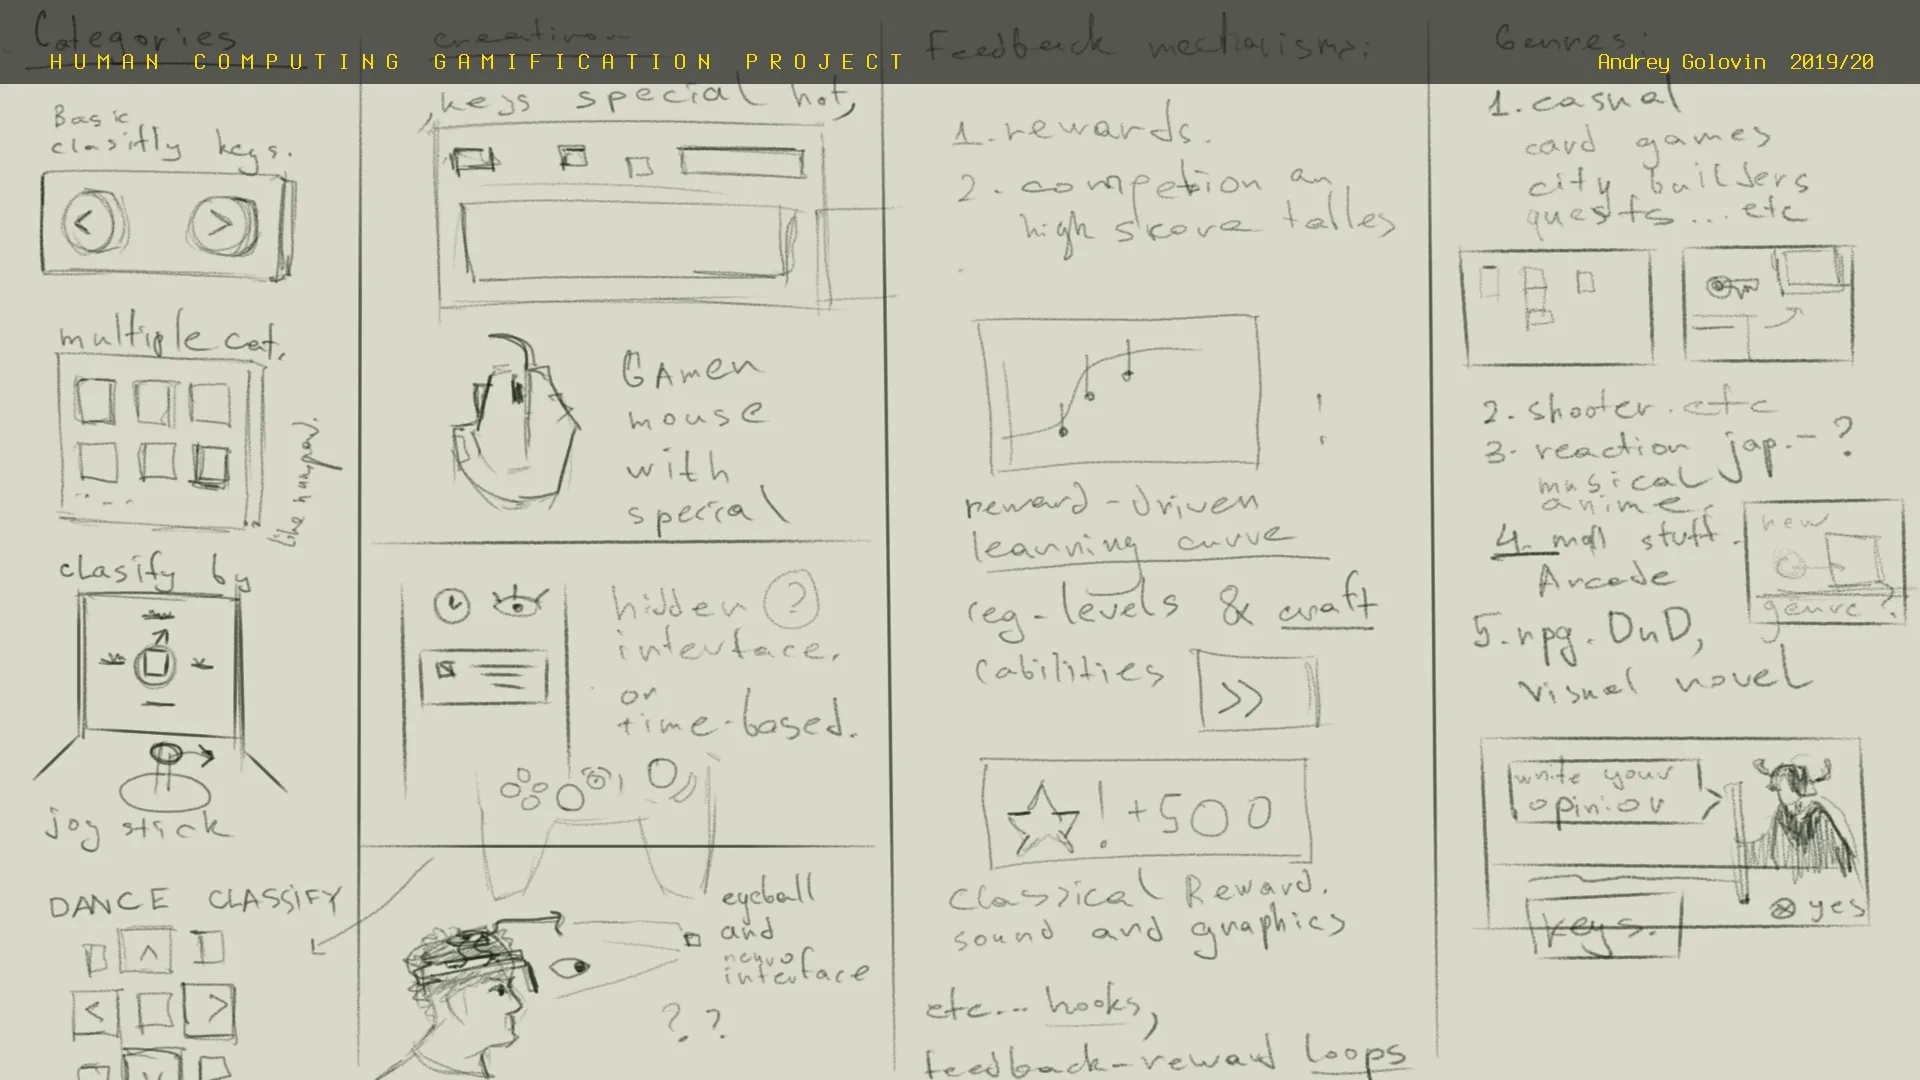 HUMAN COMPUTING GAMIFICATION PROJECT
Andrey Golovin 2019/20
Categories
Basic
clasifly keys.
multiple cat.
clasify by
joy stick
DANCE CLASSIFY
creation
keys special hot,
GAmen
mouse
with
special
hidden ?
interface.
or
time-based.
eyeball
and
neyro
interface
? ?
Feedback mechanisms:
1. rewards.
2. competion an
high score talles
!
reward-driven
learning curve
reg-levels & craft
cabilities
>>
! +500
classical Reward.
sound and graphics
etc... hooks,
feedback-reward loops
Genres:
1. casual
card games
city builders
quests ... etc
2. shooter. etc
3. reaction jap. - ?
musical
anime.
4. moll stuff.
Arcade
new
genre ?
5. rpg. DnD,
visual novel
write your
opinion
yes
keys.